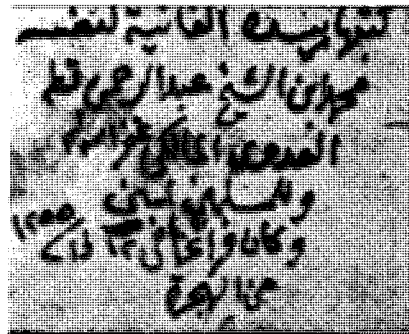 كتبها بيده الفانية لنفسه
ابن الشيخ عبد الرحمن قطه
العدوي المالكي غفر الله
وللمسلمين امين
وكان فراغها في ١٢ ١٢٥٥
من الهجرة